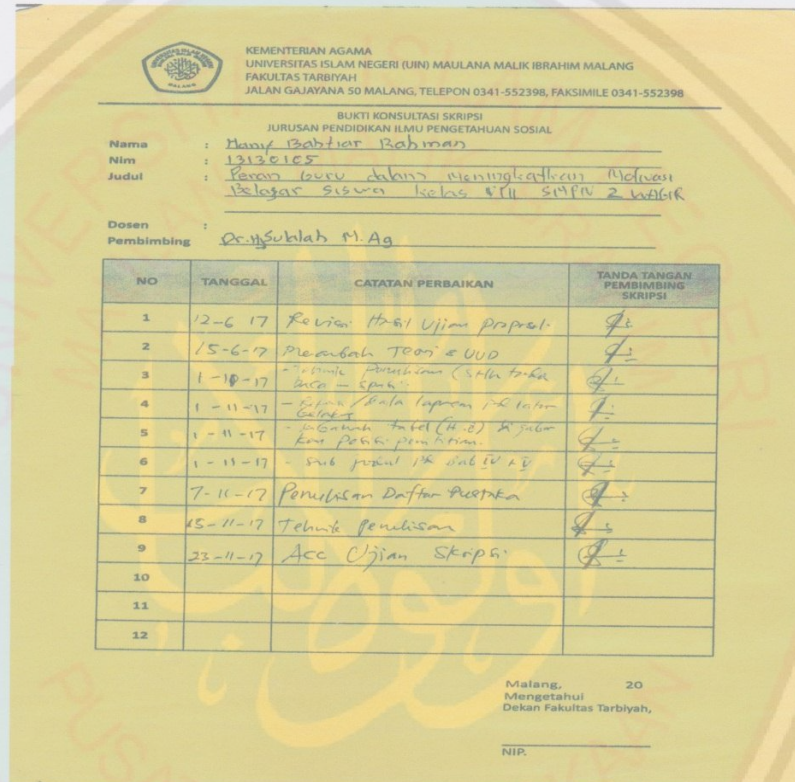 KEMENTERIAN AGAMA
UNIVERSITAS ISLAM NEGERI (UIN) MAULANA MALIK IBRAHIM MALANG
FAKULTAS TARBIYAH
JALAN GAJAYANA 50 MALANG, TELEPON 0341-552398, FAKSIMILE 0341-552398
BUKTI KONSULTASI SKRIPSI
JURUSAN PENDIDIKAN ILMU PENGETAHUAN SOSIAL
Nama : Hanif Bahtiar Rahman
Nim : 13130105
Judul : Peran Guru dalam Meningkatkan Motivasi
Belajar Siswa kelas VIII SMPN 2 WAGIR
Dosen Pembimbing : Dr. Hj Sulalah M.Ag
NO TANGGAL CATATAN PERBAIKAN TANDA TANGAN PEMBIMBING SKRIPSI
1 12-6 17 Revisi Hasil Ujian proposal
2 15-6-17 Teori & UUD
3 1-10-17
4 1-11-17
5 1-11-17 tabel posisi penelitian
6 1-11-17 - sub judul bab IV + V
7 7-11-17 Penulisan Daftar Pustaka
8 15-11-17 Tehnik Penulisan
9 23-11-17 Acc Ujian Skripsi
10
11
12
Malang, 20
Mengetahui
Dekan Fakultas Tarbiyah,
NIP.